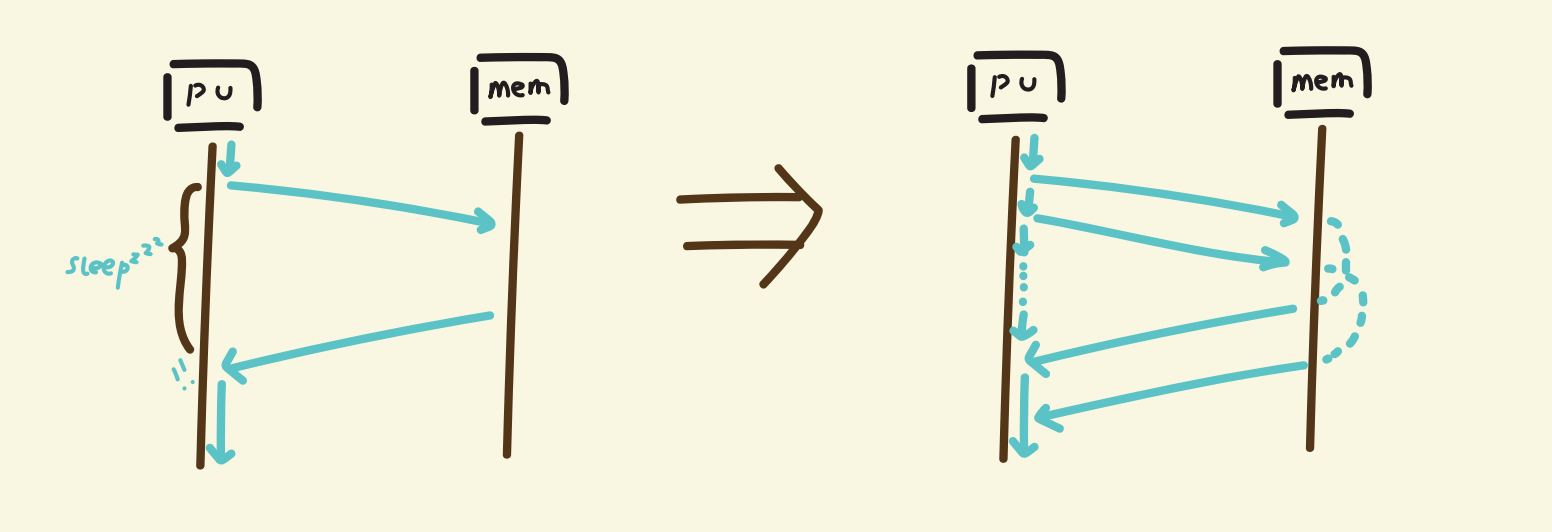 pu
mem
sleepzzz
!!
pu
mem